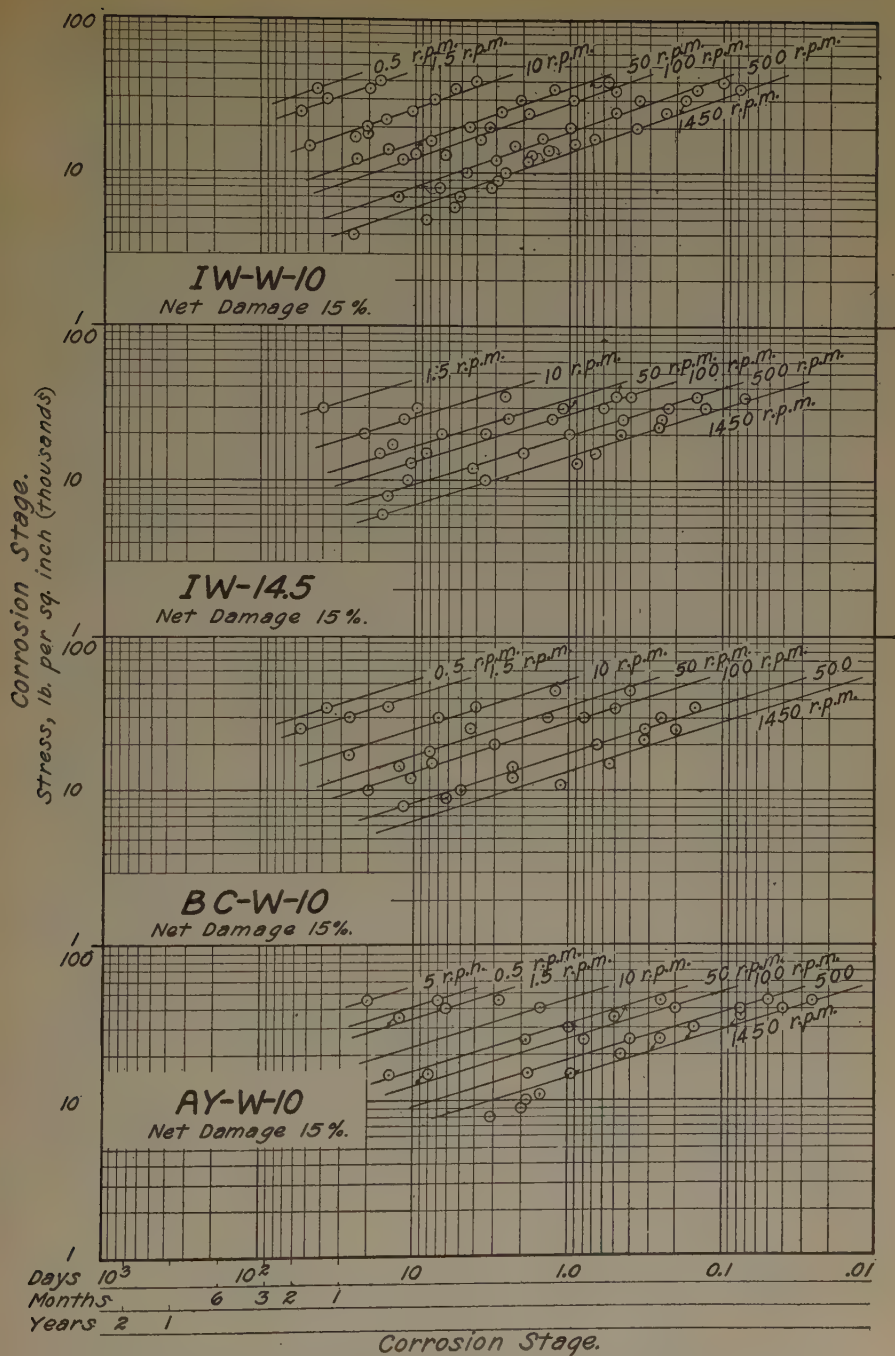 Corrosion Stage.
Stress, lb. per sq. inch (thousands)
100
0.5 r.p.m.
1.5 r.p.m.
10 r.p.m.
50 r.p.m.
100 r.p.m.
500 r.p.m.
1450 r.p.m.
10
IW-W-10
Net Damage 15%.
1
100
1.5 r.p.m.
10 r.p.m.
50 r.p.m.
100 r.p.m.
500 r.p.m.
1450 r.p.m.
10
IW-14.5
Net Damage 15%.
1
100
0.5 r.p.m.
1.5 r.p.m.
10 r.p.m.
50 r.p.m.
100 r.p.m.
500
1450 r.p.m.
10
BC-W-10
Net Damage 15%.
1
100
5 r.p.h.
0.5 r.p.m.
1.5 r.p.m.
10 r.p.m.
50 r.p.m.
100 r.p.m.
500
1450 r.p.m.
10
AY-W-10
Net Damage 15%.
1
Days 10³ 10² 10 1.0 0.1 .01
Months 6 3 2 1
Years 2 1
Corrosion Stage.